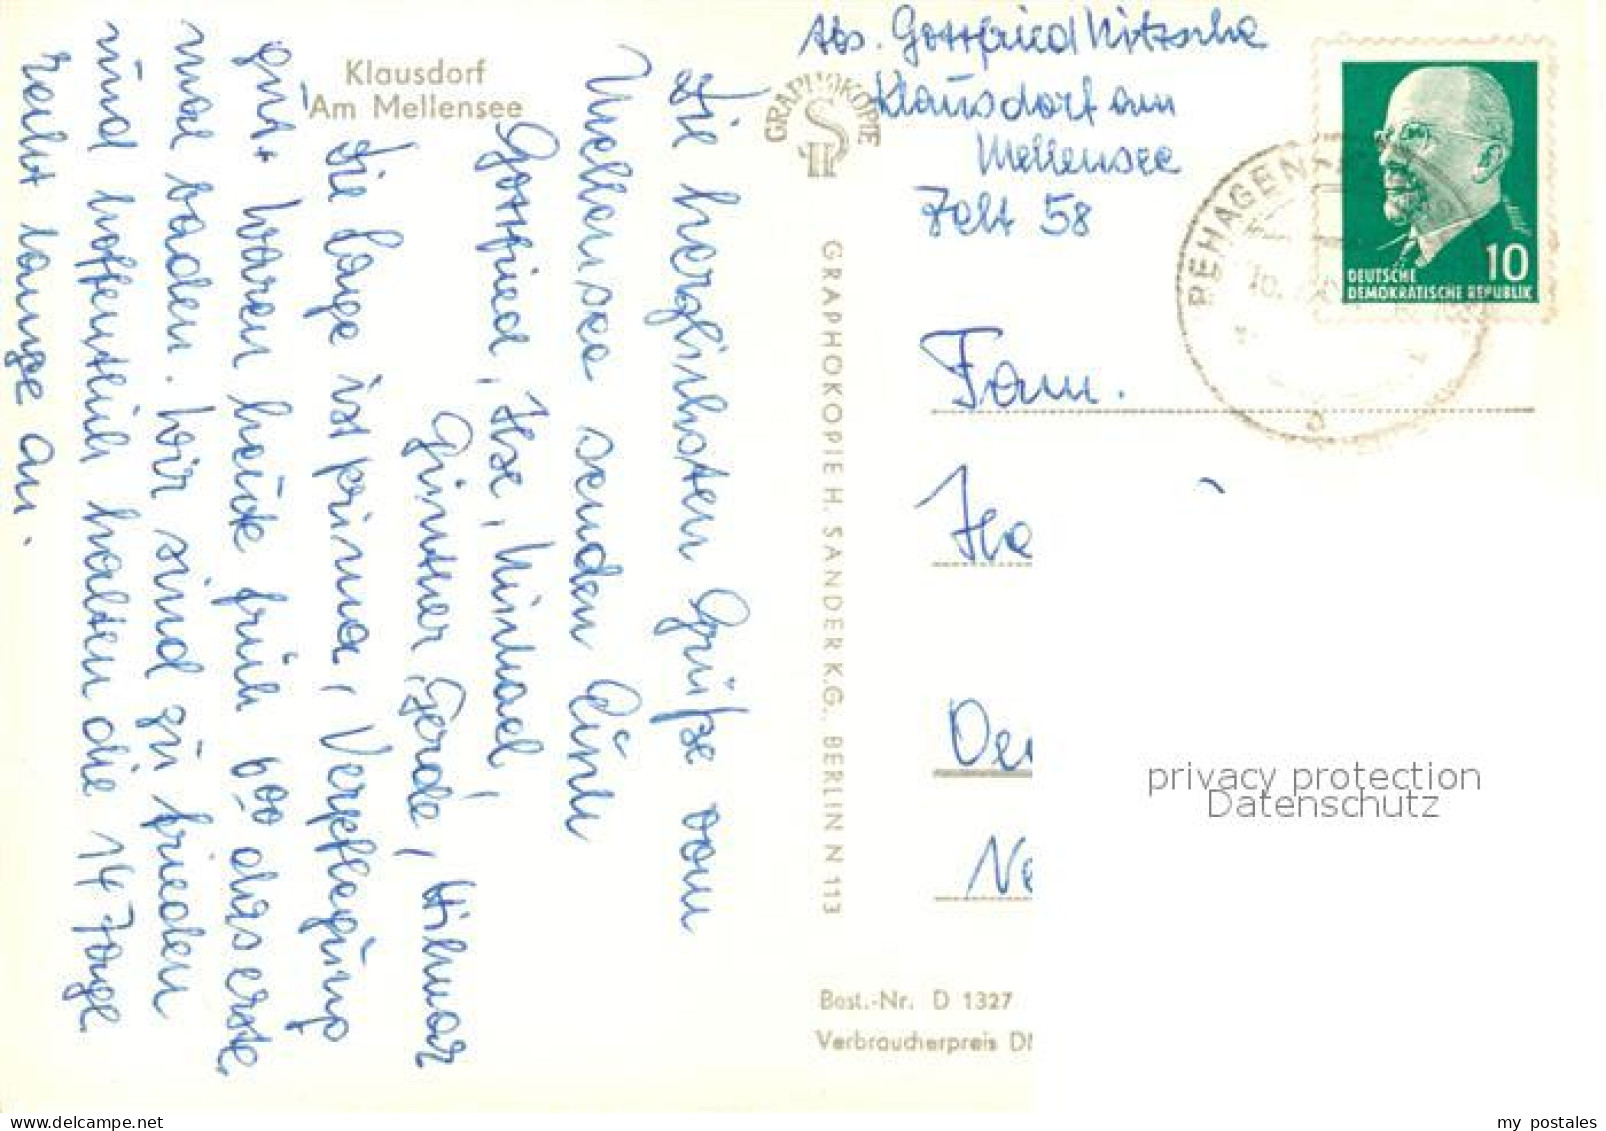 Klausdorf
Am Mellensee
Die herzlichsten Grüße vom
Mellensee senden Euch
Gottfried, Ilse, Michael,
Günther, Gerda, Hilmar
Die Lage ist prima, Verpflegung
gut. Waren heute früh 6⁰⁰ das erste
mal baden. Wir sind zufrieden
und hoffentlich halten die 14 Tage
recht lange an.
GRAPHOKOPIE
H S
GRAPHOKOPIE H. SANDER K.G., BERLIN N 113
Abs. Gottfried Nitzsche
Klausdorf am
Mellensee
Zelt 58
10
DEUTSCHE
DEMOKRATISCHE REPUBLIK
REHAGEN
Fam.
privacy protection
Datenschutz
Best.-Nr. D 1327
Verbraucherpreis
my postales